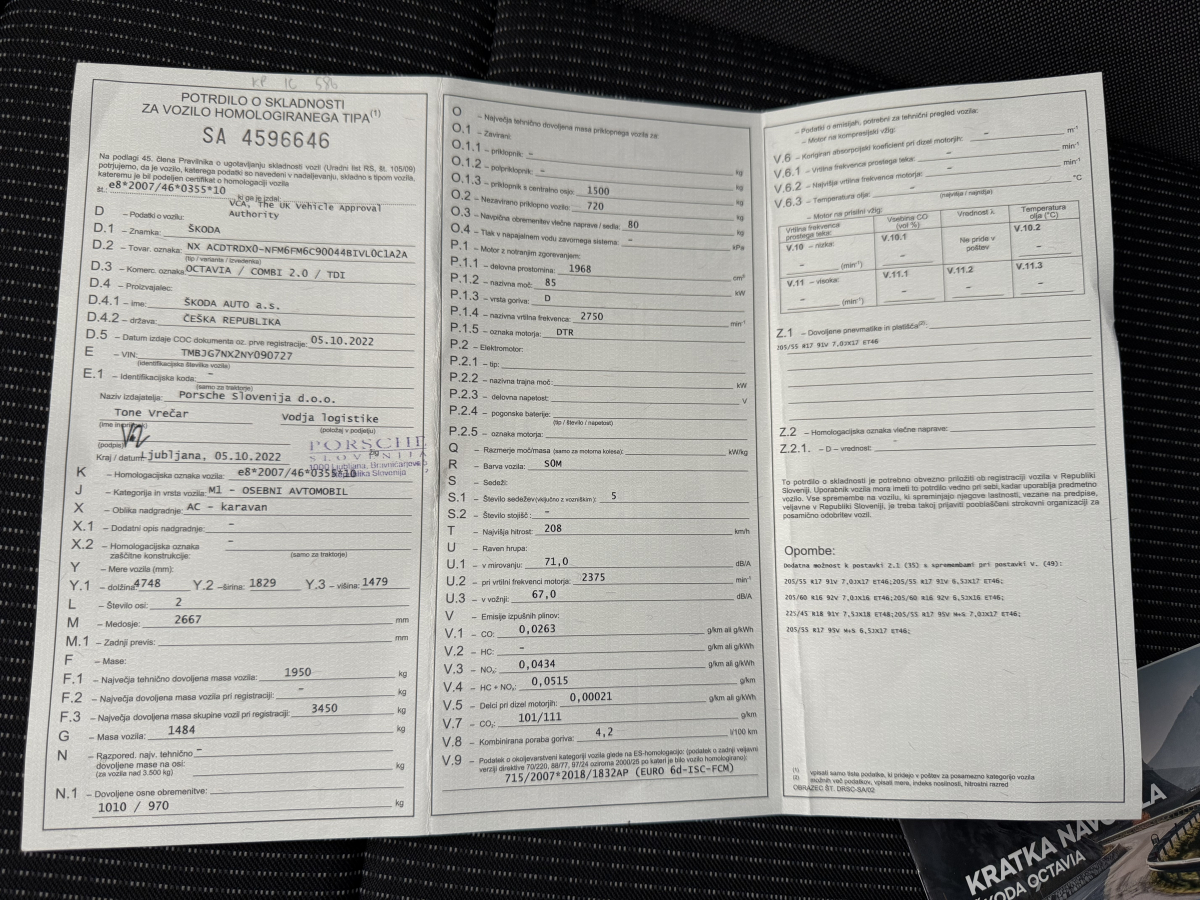 KP IG 586
POTRDILO O SKLADNOSTI
ZA VOZILO HOMOLOGIRANEGA TIPA(1)
SA 4596646
Na podlagi 45. člena Pravilnika o ugotavljanju skladnosti vozil (Uradni list RS, št. 105/09)
potrjujemo, da je vozilo, katerega podatki so navedeni v nadaljevanju, skladno s tipom vozila,
kateremu je bil podeljen certifikat o homologaciji vozila
št. e8*2007/46*0355*10 ki ga je izdal:
VCA, The UK Vehicle Approval
Authority
D – Podatki o vozilu:
D.1 – Znamka: ŠKODA
D.2 – Tovar. oznaka: NX ACDTRDX0-NFM6FM6C90044BIVL0C1A2A
(tip / varianta / izvedenka)
D.3 – Komerc. oznaka: OCTAVIA / COMBI 2.0 / TDI
D.4 – Proizvajalec:
D.4.1 – ime: ŠKODA AUTO a.s.
D.4.2 – država: ČEŠKA REPUBLIKA
D.5 – Datum izdaje COC dokumenta oz. prve registracije: 05.10.2022
E – VIN: TMBJG7NX2NY090727
(identifikacijska številka vozila)
E.1 – Identifikacijska koda: –
(samo za traktorje)
Naziv izdajatelja: Porsche Slovenija d.o.o.
Tone Vrečar Vodja logistike
(ime in priimek) (položaj v podjetju)
(podpis)
PORSCHE
SLOVENIJA
1000 Ljubljana, Bravničarjeva 5
Republika Slovenija
Kraj / datum: Ljubljana, 05.10.2022
K – Homologacijska oznaka vozila: e8*2007/46*0355*10
J – Kategorija in vrsta vozila: M1 - OSEBNI AVTOMOBIL
X – Oblika nadgradnje: AC - karavan
X.1 – Dodatni opis nadgradnje: –
X.2 – Homologacijska oznaka –
zaščitne konstrukcije: (samo za traktorje)
Y – Mere vozila (mm):
Y.1 – dolžina: 4748 Y.2 –širina: 1829 Y.3 – višina: 1479
L – Število osi: 2
M – Medosje: 2667 mm
M.1 – Zadnji previs: mm
F – Mase:
F.1 – Največja tehnično dovoljena masa vozila: 1950 kg
F.2 – Največja dovoljena masa vozila pri registraciji: – kg
F.3 – Največja dovoljena masa skupine vozil pri registraciji: 3450 kg
G – Masa vozila: 1484 kg
N – Razpored. najv. tehnično –
dovoljene mase na osi:
(za vozila nad 3.500 kg) kg
N.1 – Dovoljene osne obremenitve:
1010 / 970 kg
O – Največja tehnično dovoljena masa priklopnega vozila za:
O.1 – Zavirani:
O.1.1 – priklopnik: –
O.1.2 – polpriklopnik: – kg
O.1.3 – priklopnik s centralno osjo: 1500 kg
O.2 – Nezavirano priklopno vozilo: 720 kg
O.3 – Navpična obremenitev vlečne naprave / sedla: 80 kg
O.4 – Tlak v napajalnem vodu zavornega sistema: – kPa
P.1 – Motor z notranjim zgorevanjem:
P.1.1 – delovna prostornina: 1968 cm³
P.1.2 – nazivna moč: 85 kW
P.1.3 – vrsta goriva: D
P.1.4 – nazivna vrtilna frekvenca: 2750 min⁻¹
P.1.5 – oznaka motorja: DTR
P.2 – Elektromotor:
P.2.1 – tip:
P.2.2 – nazivna trajna moč: kW
P.2.3 – delovna napetost: V
P.2.4 – pogonske baterije:
(tip / število / napetost)
P.2.5 – oznaka motorja:
Q – Razmerje moč/masa (samo za motorna kolesa): kW/kg
R – Barva vozila: SOM
S – Sedeži:
S.1 – Število sedežev(vključno z vozniškim): 5
S.2 – Število stojišč: –
T – Najvišja hitrost: 208 km/h
U – Raven hrupa:
U.1 – v mirovanju: 71,0 dB/A
U.2 – pri vrtilni frekvenci motorja: 2375 min⁻¹
U.3 – v vožnji: 67,0 dB/A
V – Emisije izpušnih plinov:
V.1 – CO: 0,0263 g/km ali g/kWh
V.2 – HC: – g/km ali g/kWh
V.3 – NOₓ: 0,0434 g/km ali g/kWh
V.4 – HC + NOₓ: 0,0515 g/km
V.5 – Delci pri dizel motorjih: 0,00021 g/km ali g/kWh
V.7 – CO₂: 101/111 g/km
V.8 – Kombinirana poraba goriva: 4,2 l/100 km
V.9 – Podatek o okoljevarstveni kategoriji vozila glede na ES-homologacijo: (podatek o zadnji veljavni
verziji direktive 70/220, 88/77, 97/24 oziroma 2000/25 po kateri je bilo vozilo homologirano):
715/2007*2018/1832AP (EURO 6d-ISC-FCM)
– Podatki o emisijah, potrebni za tehnični pregled vozila:
– Motor na kompresijski vžig:
V.6 – Korigiran absorpcijski koeficient pri dizel motorjih: – m⁻¹
V.6.1 – Vrtilna frekvenca prostega teka: – min⁻¹
V.6.2 – Najvišja vrtilna frekvenca motorja: – min⁻¹
V.6.3 – Temperatura olja: – °C
(najvišja / najnižja)
– Motor na prisilni vžig:
Vrtilna frekvenca prostega teka: Vsebina CO (vol %) Vrednost λ Temperatura olja (°C)
V.10 – nizka: – (min⁻¹) V.10.1 – Ne pride v poštev V.10.2 –
V.11 – visoka: – (min⁻¹) V.11.1 – V.11.2 – V.11.3 –
Z.1 – Dovoljene pnevmatike in platišča(2):
205/55 R17 91V 7,0JX17 ET46
Z.2 – Homologacijska oznaka vlečne naprave:
Z.2.1. – D – vrednost:
To potrdilo o skladnosti je potrebno obvezno priložiti ob registraciji vozila v Republiki
Sloveniji. Uporabnik vozila mora imeti to potrdilo vedno pri sebi, kadar uporablja predmetno
vozilo. Vse spremembe na vozilu, ki spreminjajo njegove lastnosti, vezane na predpise,
veljavne v Republiki Sloveniji, je treba takoj prijaviti pooblaščeni strokovni organizaciji za
posamično odobritev vozil.
Opombe:
Dodatna možnost k postavki 2.1 (35) s spremembami pri postavki v. (49):
205/55 R17 91V 7,0JX17 ET46;205/55 R17 91V 6,5JX17 ET46;
205/60 R16 92V 7,0JX16 ET46;205/60 R16 92V 6,5JX16 ET46;
225/45 R18 91V 7,5JX18 ET48;205/55 R17 95V M+S 7,0JX17 ET46;
205/55 R17 95V M+S 6,5JX17 ET46;
(1) vpisati samo tiste podatke, ki pridejo v poštev za posamezno kategorijo vozila
(2) možnih več podatkov, vpisati mere, indeks nosilnosti, hitrostni razred
OBRAZEC ŠT. DRSC-SA/02
KRATKA
ŠKODA OCTAVIA